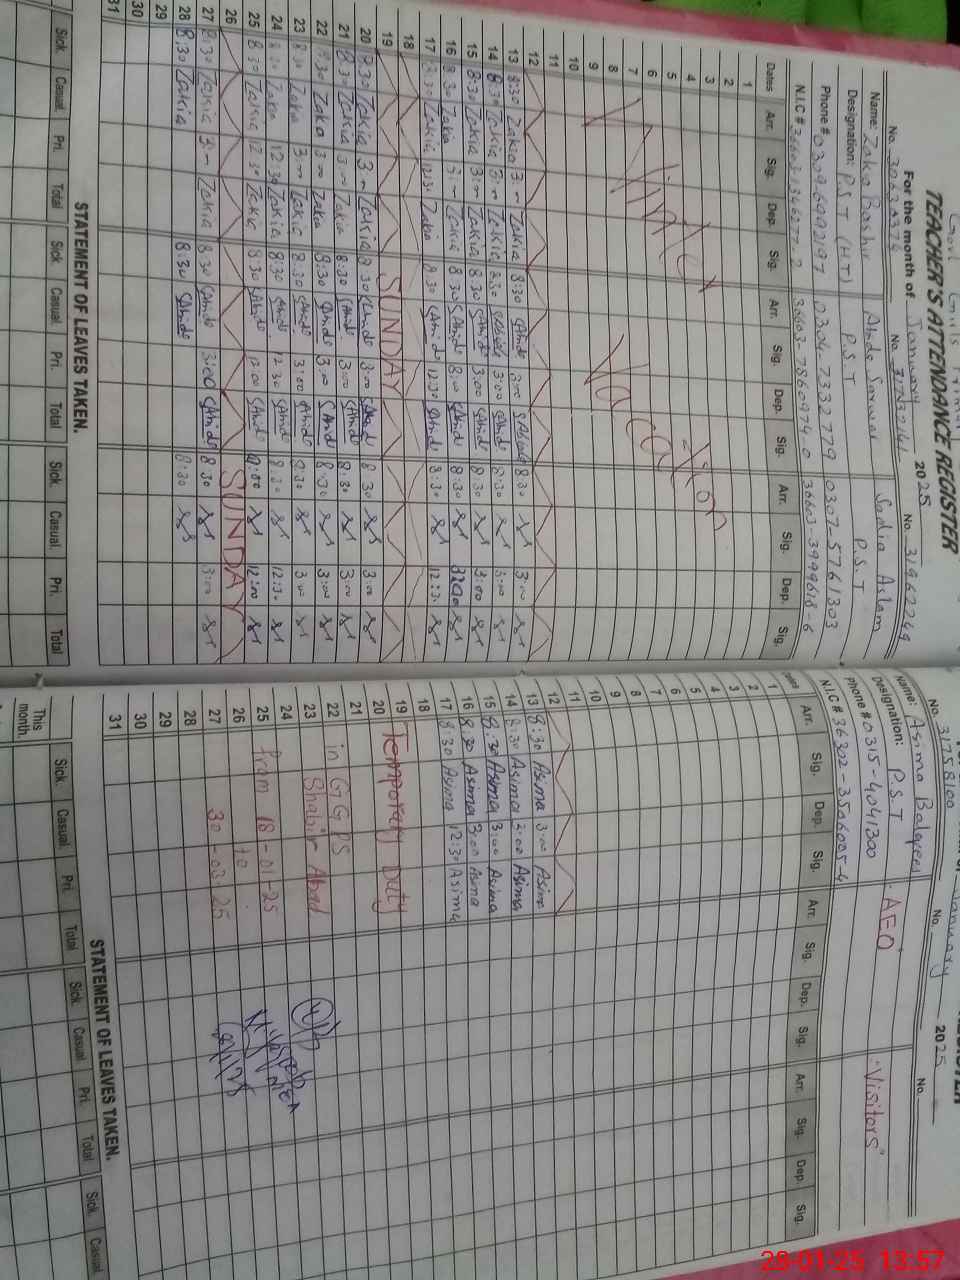 TEACHER'S ATTENDANCE REGISTER
For the month of January 2025
No. 31962249
Name: Zakia Bashir Abida Sarwar Sadia Aslam
Designation: P.S.T (H.T) P.S.T P.S.T
Phone # 0309-6992197 0304-7332779 0307-5761303
N.I.C # 36603-7860974-0 36603-3999618-6
Dates Arr. Sig. Dep. Sig. Arr. Sig. Dep. Sig. Arr. Sig. Dep. Sig.
1
2
3
4
5
6
7
8
9
10
11
Winter Vacation
12
13 8:30 Zakia 3:00 Zakia 8:30 Abida 3:00 Abida 8:30 3:00
14 8:30 Zakia 3:00 Zakia 8:30 Abida 3:00 Abida 8:30 3:00
15 8:30 Zakia 3:00 Zakia 8:30 Abida 3:00 Abida 8:30 3:00
16 8:30 Zakia 3:00 Zakia 8:30 Abida 3:00 Abida 8:30 3:00
17 8:30 Zakia 12:30 Zakia 8:30 Abida 12:30 Abida 8:30 12:30
18
19 SUNDAY
20 8:30 Zakia 3:00 Zakia 8:30 Abida 3:00 Abida 8:30 3:00
21 8:30 Zakia 3:00 Zakia 8:30 Abida 3:00 Abida 8:30 3:00
22 8:30 Zakia 3:00 Zakia 8:30 Abida 3:00 Abida 8:30 3:00
23 8:30 Zakia 3:00 Zakia 8:30 Abida 3:00 Abida 8:30 3:00
24 8:30 Zakia 12:30 Zakia 8:30 Abida 12:30 Abida 8:30 12:30
25 8:30 Zakia 12:30 Zakia 8:30 Abida 12:00 Abida 12:00
26 SUNDAY
27 8:30 Zakia 3:00 Zakia 8:30 Abida 3:00 Abida 8:30 3:00
28 8:30 Zakia 8:30 Abida 8:30
29
30
31
STATEMENT OF LEAVES TAKEN.
Sick. Casual. Pri. Total Sick. Casual. Pri. Total Sick. Casual. Pri. Total
January 2025
No. 31758100 No. No.
Name: Asima "Visitors"
Designation: P.S.T AEO
Phone # 0315-4041300
N.I.C # 36302-3506005-4
Dates Arr. Sig. Dep. Sig. Arr. Sig. Dep. Sig. Arr. Sig. Dep. Sig.
1
2
3
4
5
6
7
8
9
10
11
12
13 8:30 Asima 3:00 Asima
14 8:30 Asima 3:00 Asima
15 8:30 Asima 3:00 Asima
16 8:30 Asima 3:00 Asima
17 8:30 Asima 12:30 Asima
18
19 Temporary Duty
20
21
22 in GGPS
23 Shabir Abad
24
25 from 18-01-25
26 to
27 30-03-25
28
29
30
31
STATEMENT OF LEAVES TAKEN.
This month. Sick. Casual. Pri. Total Sick. Casual. Pri. Total Sick. Casual
28-01-25 13:57